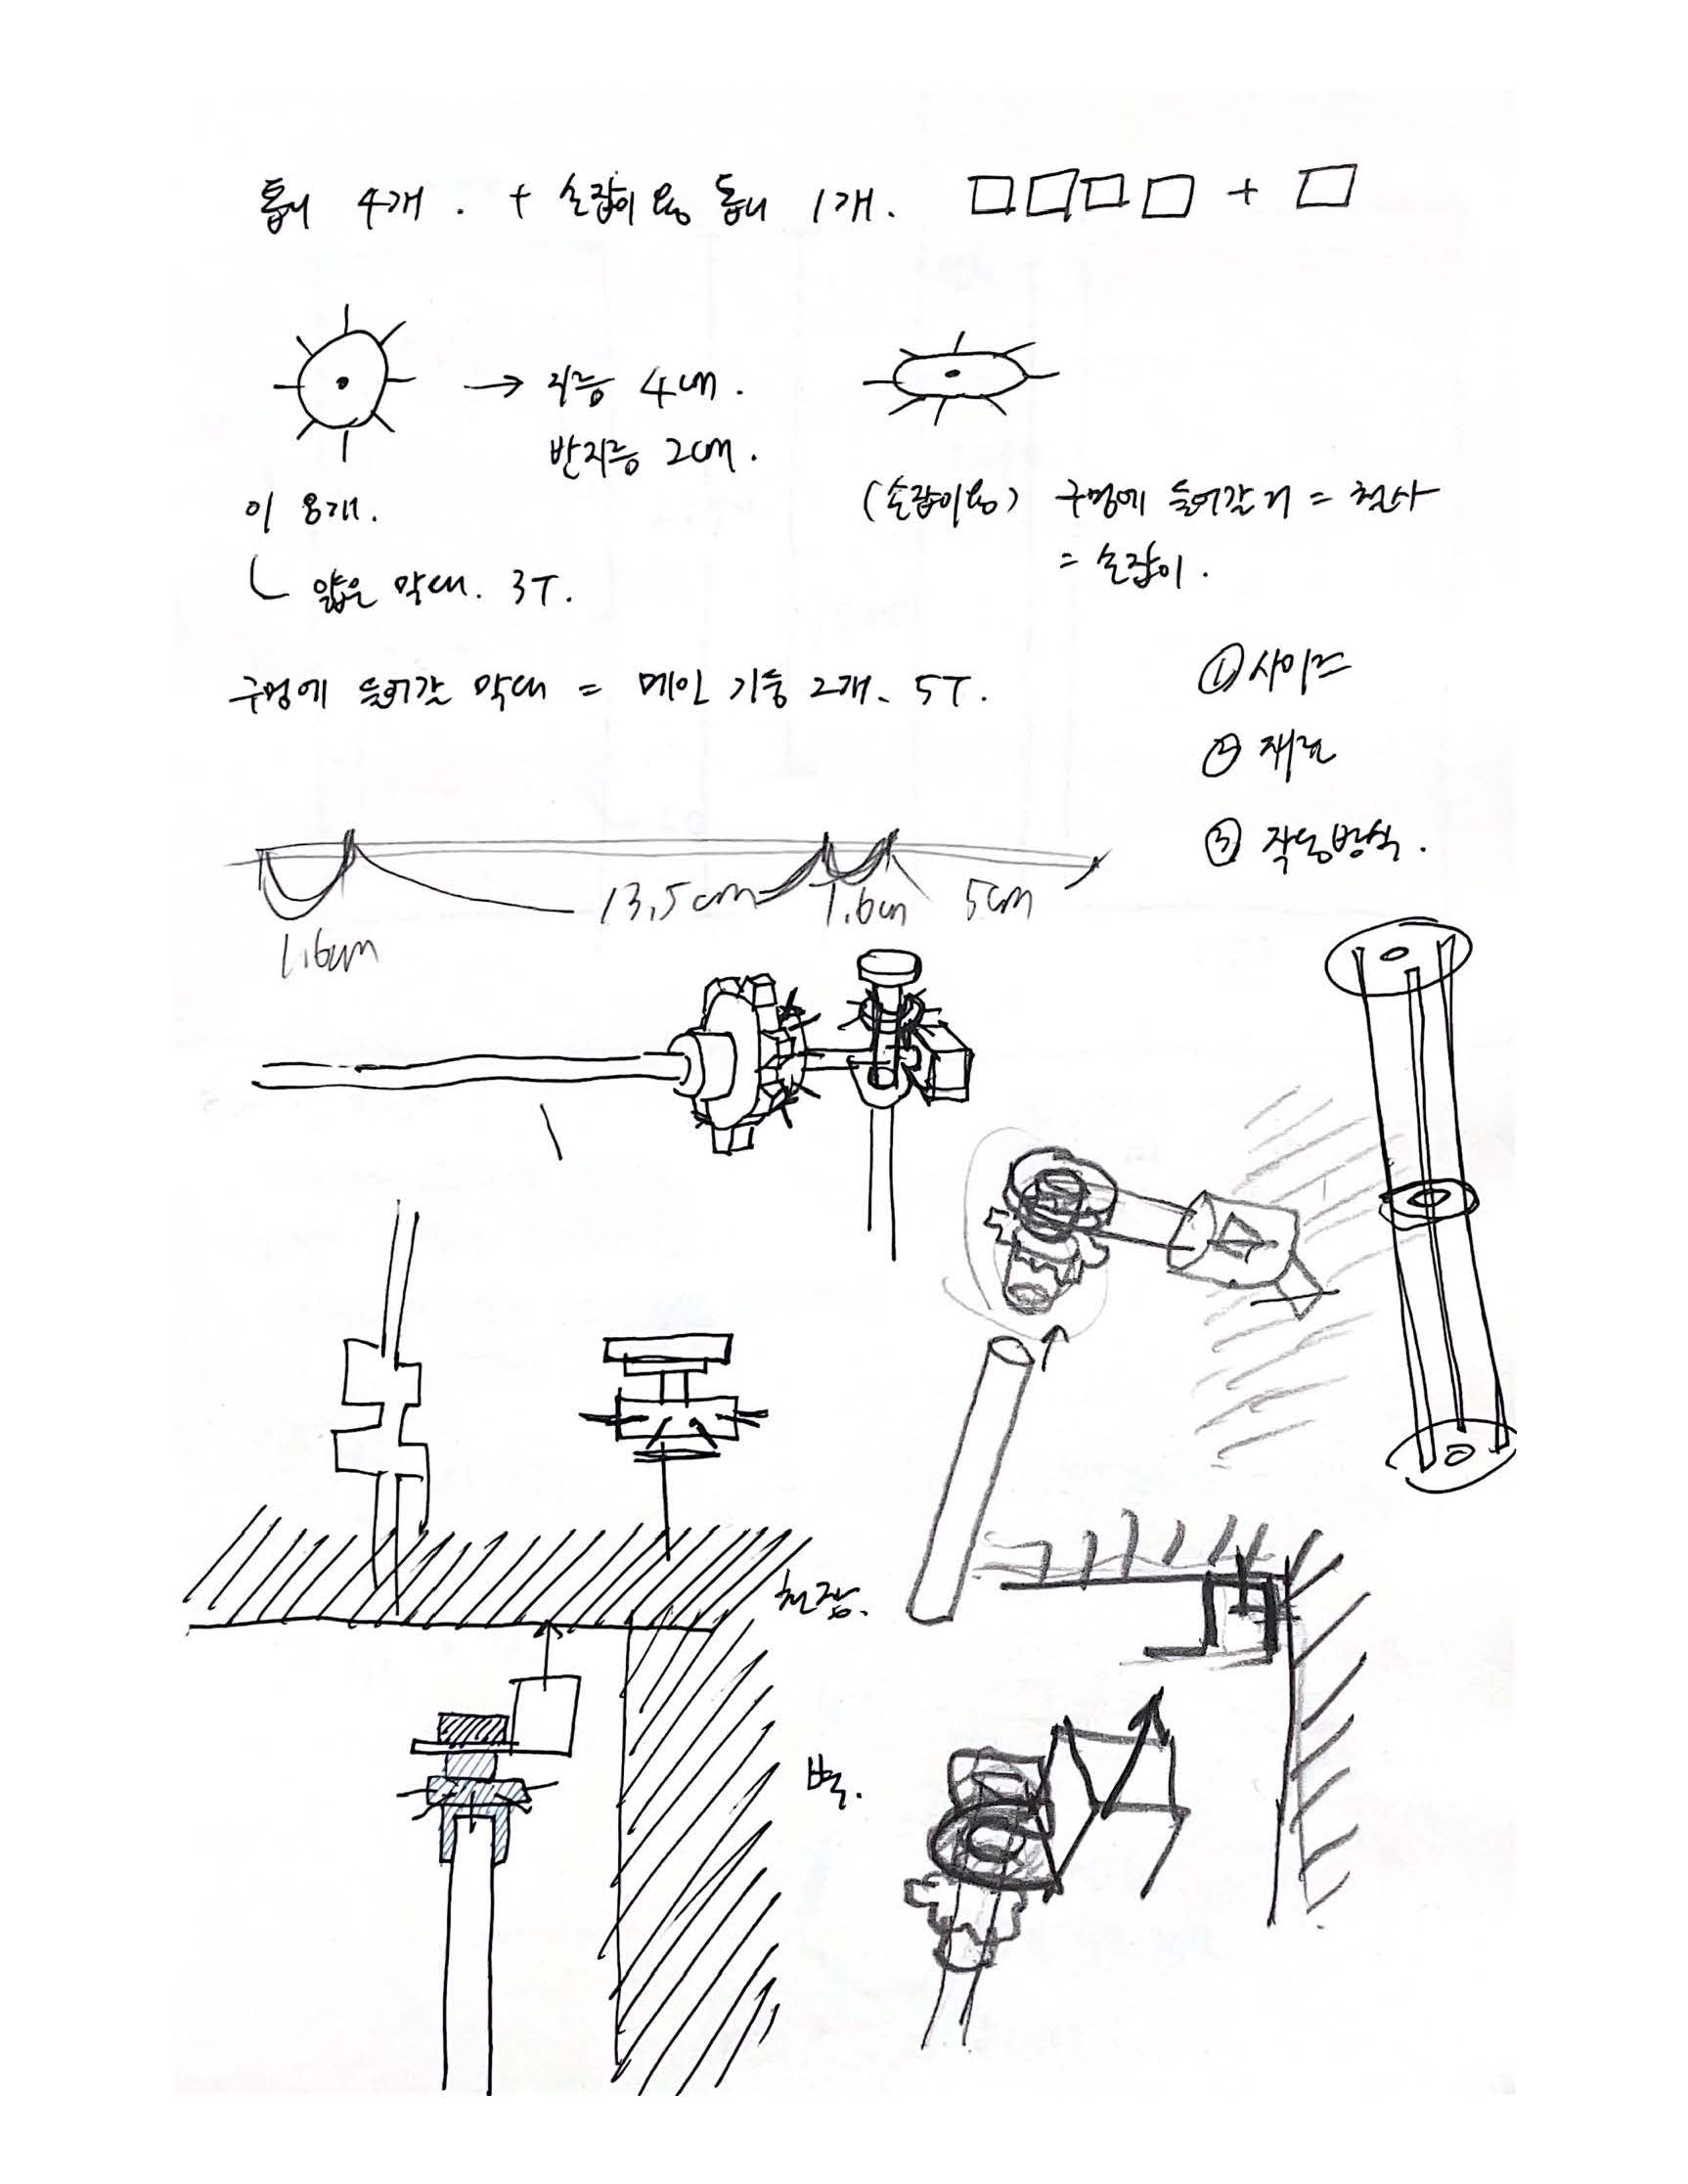 톱니 4개. + 손잡이용 톱니 1개.
+
→ 지름 4cm.
반지름 2cm.
이 8개.
얇은 막대. 3T.
(손잡이용) 구멍에 들어갈 거 = 철사
= 손잡이.
구멍에 들어갈 막대 = 메인 기둥 2개. 5T.
① 사이즈
② 재료
③ 작동방식.
1.6cm
13.5cm
1.6cm
5cm
천장.
벽.